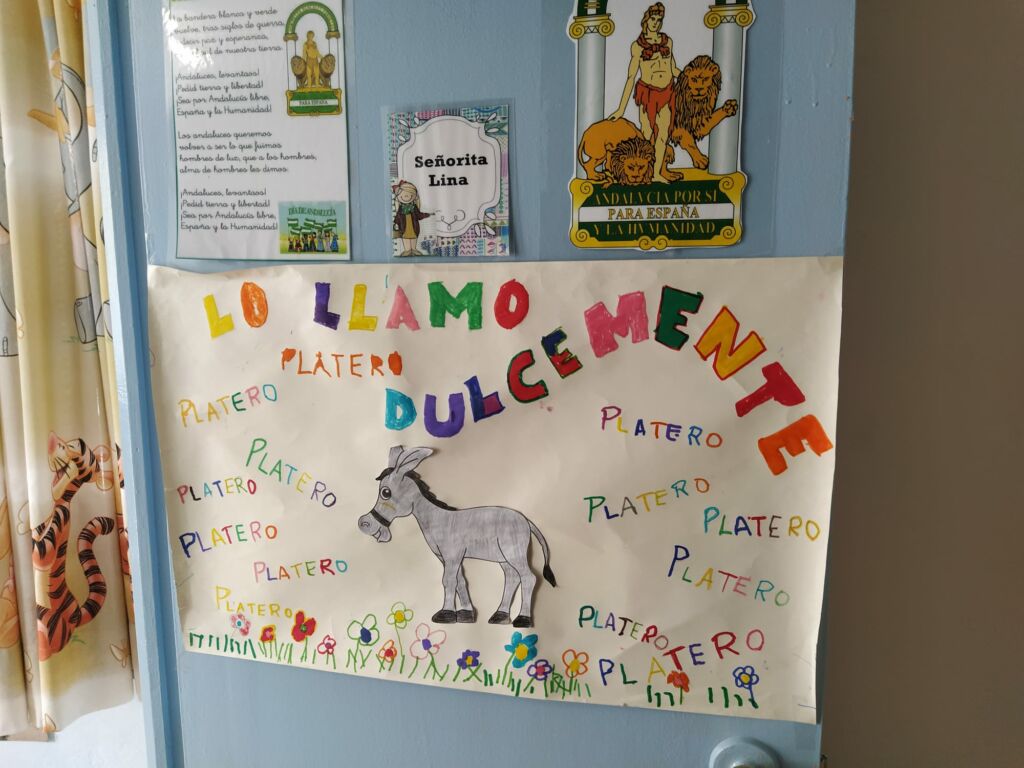 La bandera blanca y verde
vuelve, tras siglos de guerra,
a decir paz y esperanza,
de nuestra tierra.
¡Andaluces, levantaos!
¡Pedid tierra y libertad!
¡Sea por Andalucía libre,
España y la Humanidad!
Los andaluces queremos
volver a ser lo que fuimos
hombres de luz, que a los hombres,
alma de hombres les dimos.
¡Andaluces, levantaos!
¡Pedid tierra y libertad!
¡Sea por Andalucía libre,
España y la Humanidad!
PARA ESPAÑA
DÍA DE ANDALUCÍA
Señorita
Lina
ANDALVCIA POR SÍ
PARA ESPAÑA
Y LA HVMANIDAD
LO LLAMO
DULCEMENTE
PLATERO
PLATERO
PLATERO
PLATERO
PLATERO
PLATERO
PLATERO
PLATERO
PLATERO
PLATERO
PLATERO
PLATERO
PLATERO